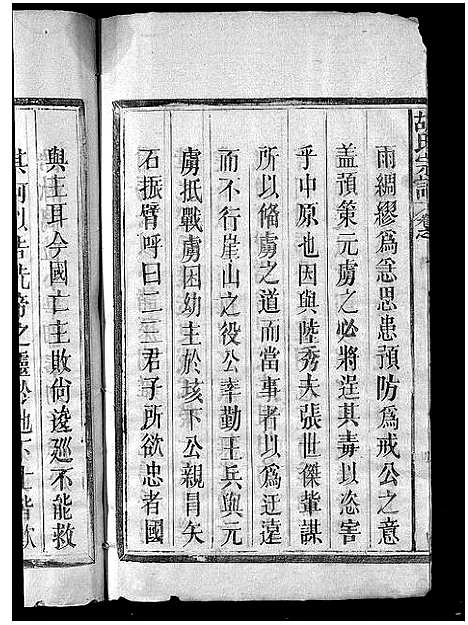 胡氏宗譜 卷之
雨綢繆為急思患預防為戒公之意
蓋預策元虜之必將逞其毒以恣害
乎中原也因與陸秀夫張世傑輩謀
所以備虜之道而當事者以為迂遠
而不行崖山之役公率勤王兵與元
虜抵戰虜困幼主於垓下公親冒矢
石振臂呼曰二三君子所欲忠者國
與主耳今國亡主敗尚逡巡不能救
其何以告先帝之靈於地下士皆歃